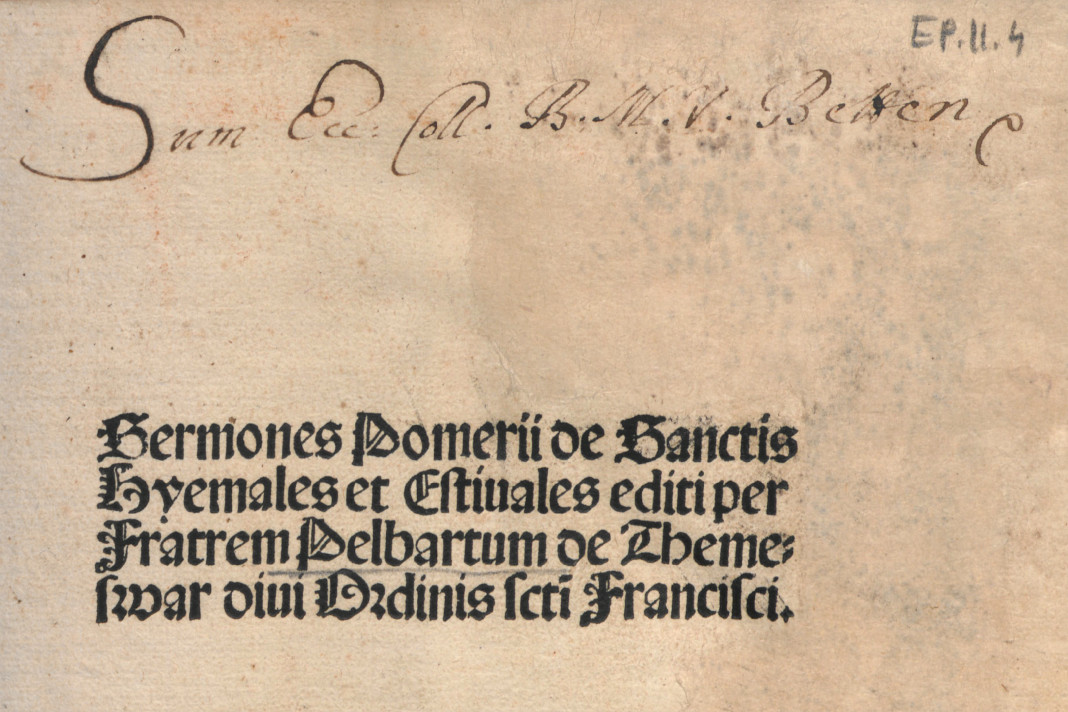 EP.II.4
Sum Ecc: Coll. B. M. V. Betten
Sermones Pomerii de Sanctis
Hyemales et Eſtiuales editi per
Fratrem Pelbartum de Theme⸗
ſwar diui Ordinis ſcti̅ Franciſci.